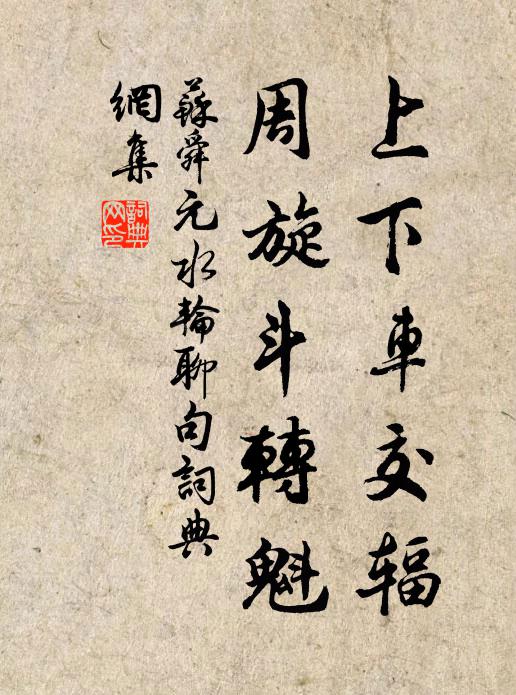 上下車交辐
周旋斗轉魁
蘇舜元水輪聊句詞典
網集
詞典
网印